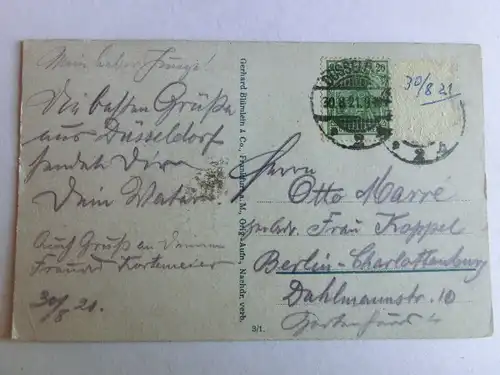 Mein lieber Junge!
Die besten Grüße
aus Düsseldorf
sendet Dir
Dein Vater.
Auch Gruß an Deinen
Freund Kortemeier
30/8 21.
Gerhard Blümlein & Co., Frankfurt a. M., Orig.-Aufn., Nachdr. verb.
3/1.
30.8.21.9
30/8 21
Herrn
Otto Marré
Frau Kappel
Berlin-Charlottenburg
Dahlmannstr. 10
Gartenhaus